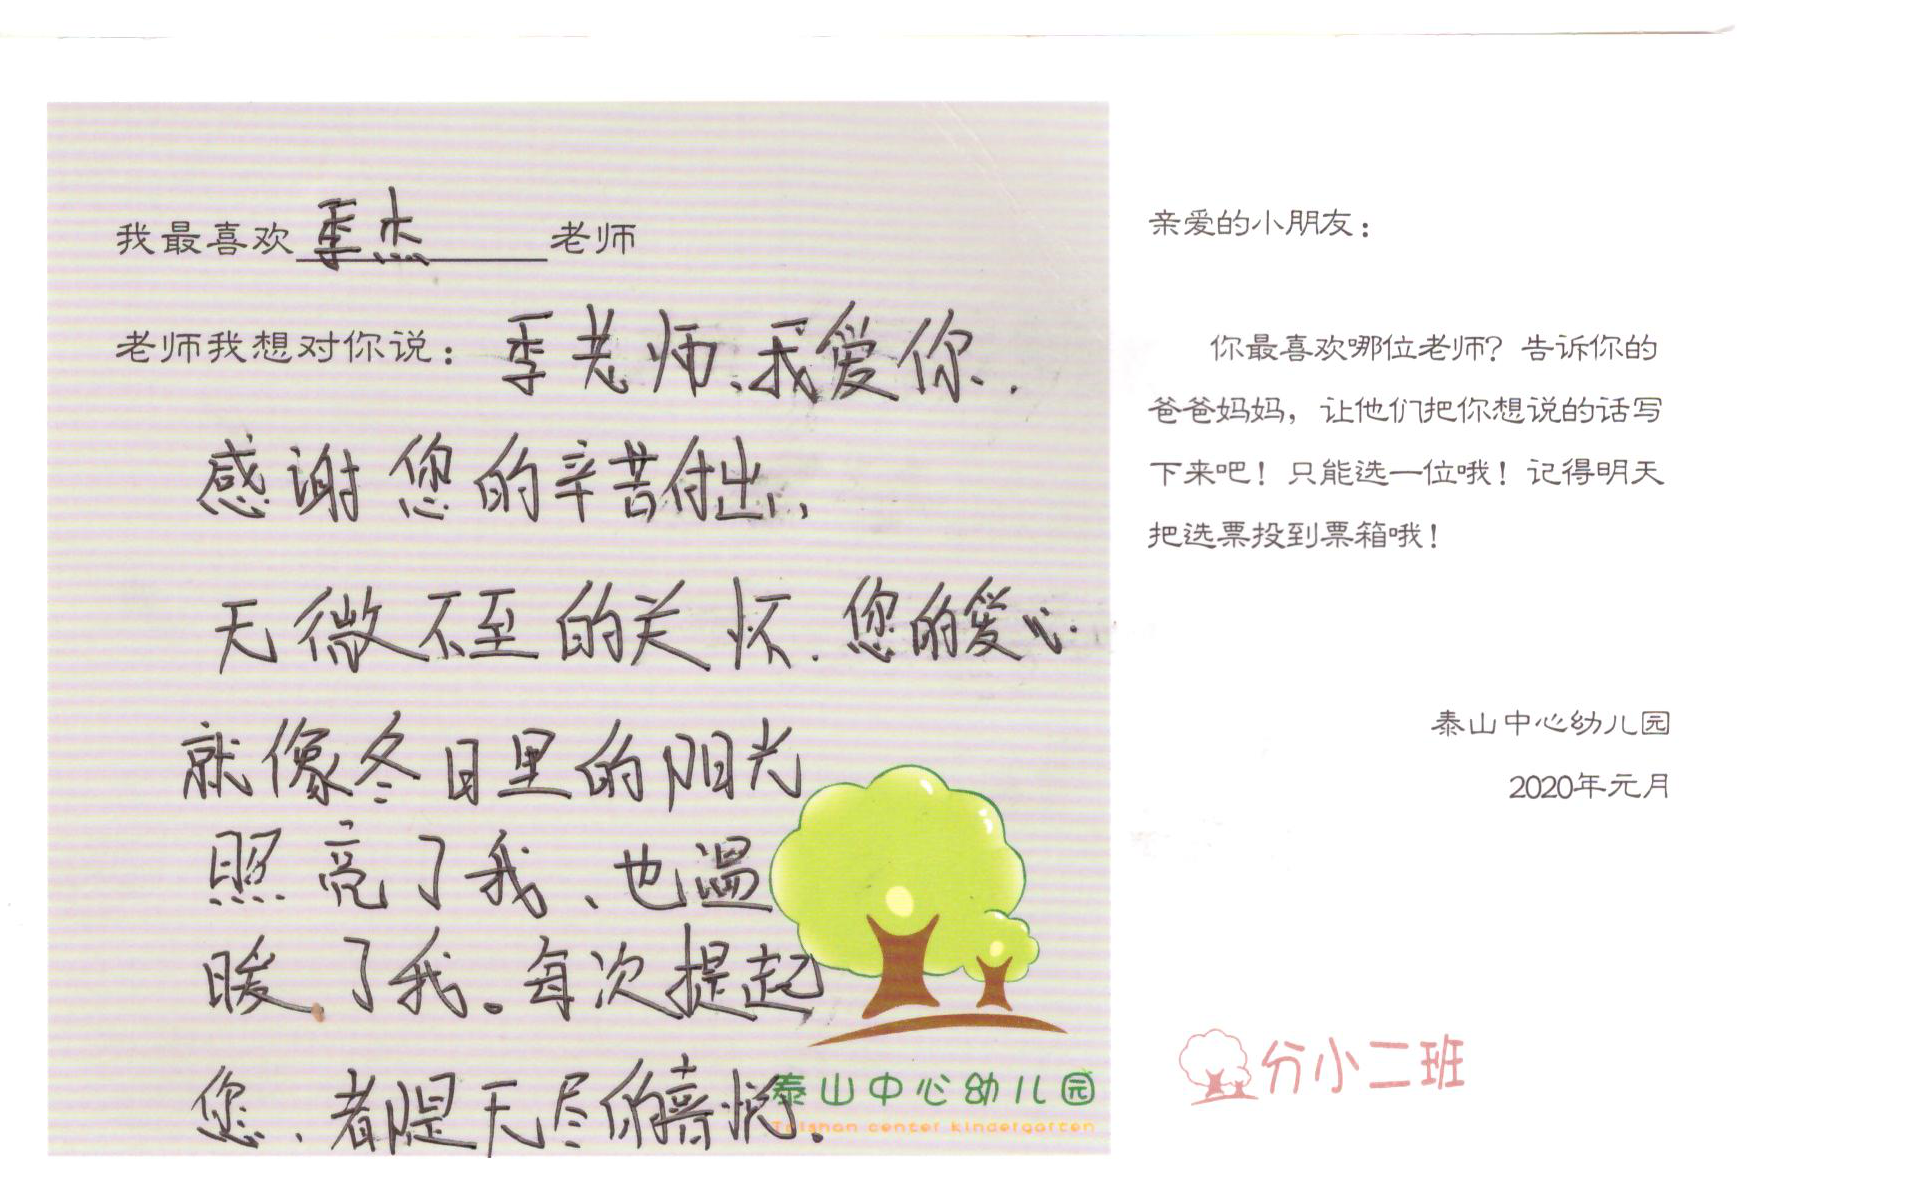 我最喜欢季杰老师
老师我想对你说：季老师、我爱你.
感谢您的辛苦付出、
无微不至的关怀.您的爱心
就像冬日里的阳光
照亮了我、也温
暖了我。每次提起
您、都是无尽的喜悦.
泰山中心幼儿园
Taishan center kindergarten
亲爱的小朋友：
你最喜欢哪位老师？告诉你的
爸爸妈妈，让他们把你想说的话写
下来吧！只能选一位哦！记得明天
把选票投到票箱哦！
泰山中心幼儿园
2020年元月
分小二班